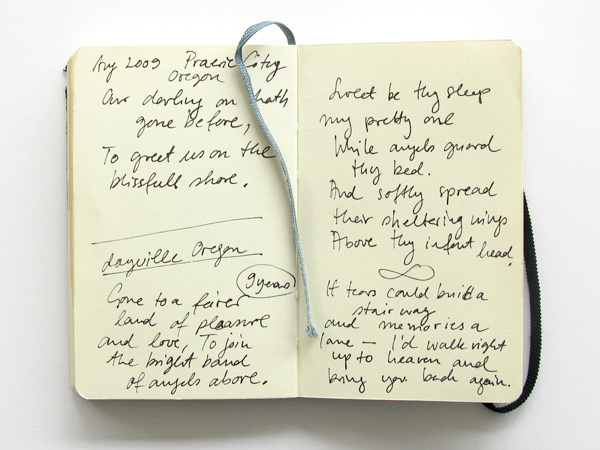 Aug 2009 Prairie City
Oregon
Our darling on hath
gone before,
To greet us on the
blissfull shore.
dayville Oregon
9 years
Gone to a fairer
land of pleasure
and love, To join
the bright band
of angels above.
Sweet be thy sleep
my pretty one
While angels guard
thy bed.
And softly spread
their sheltering wings
Above thy infant head.
If tears could build a
stairway
and memories a
lane — I'd walk right
up to heaven and
bring you back again.